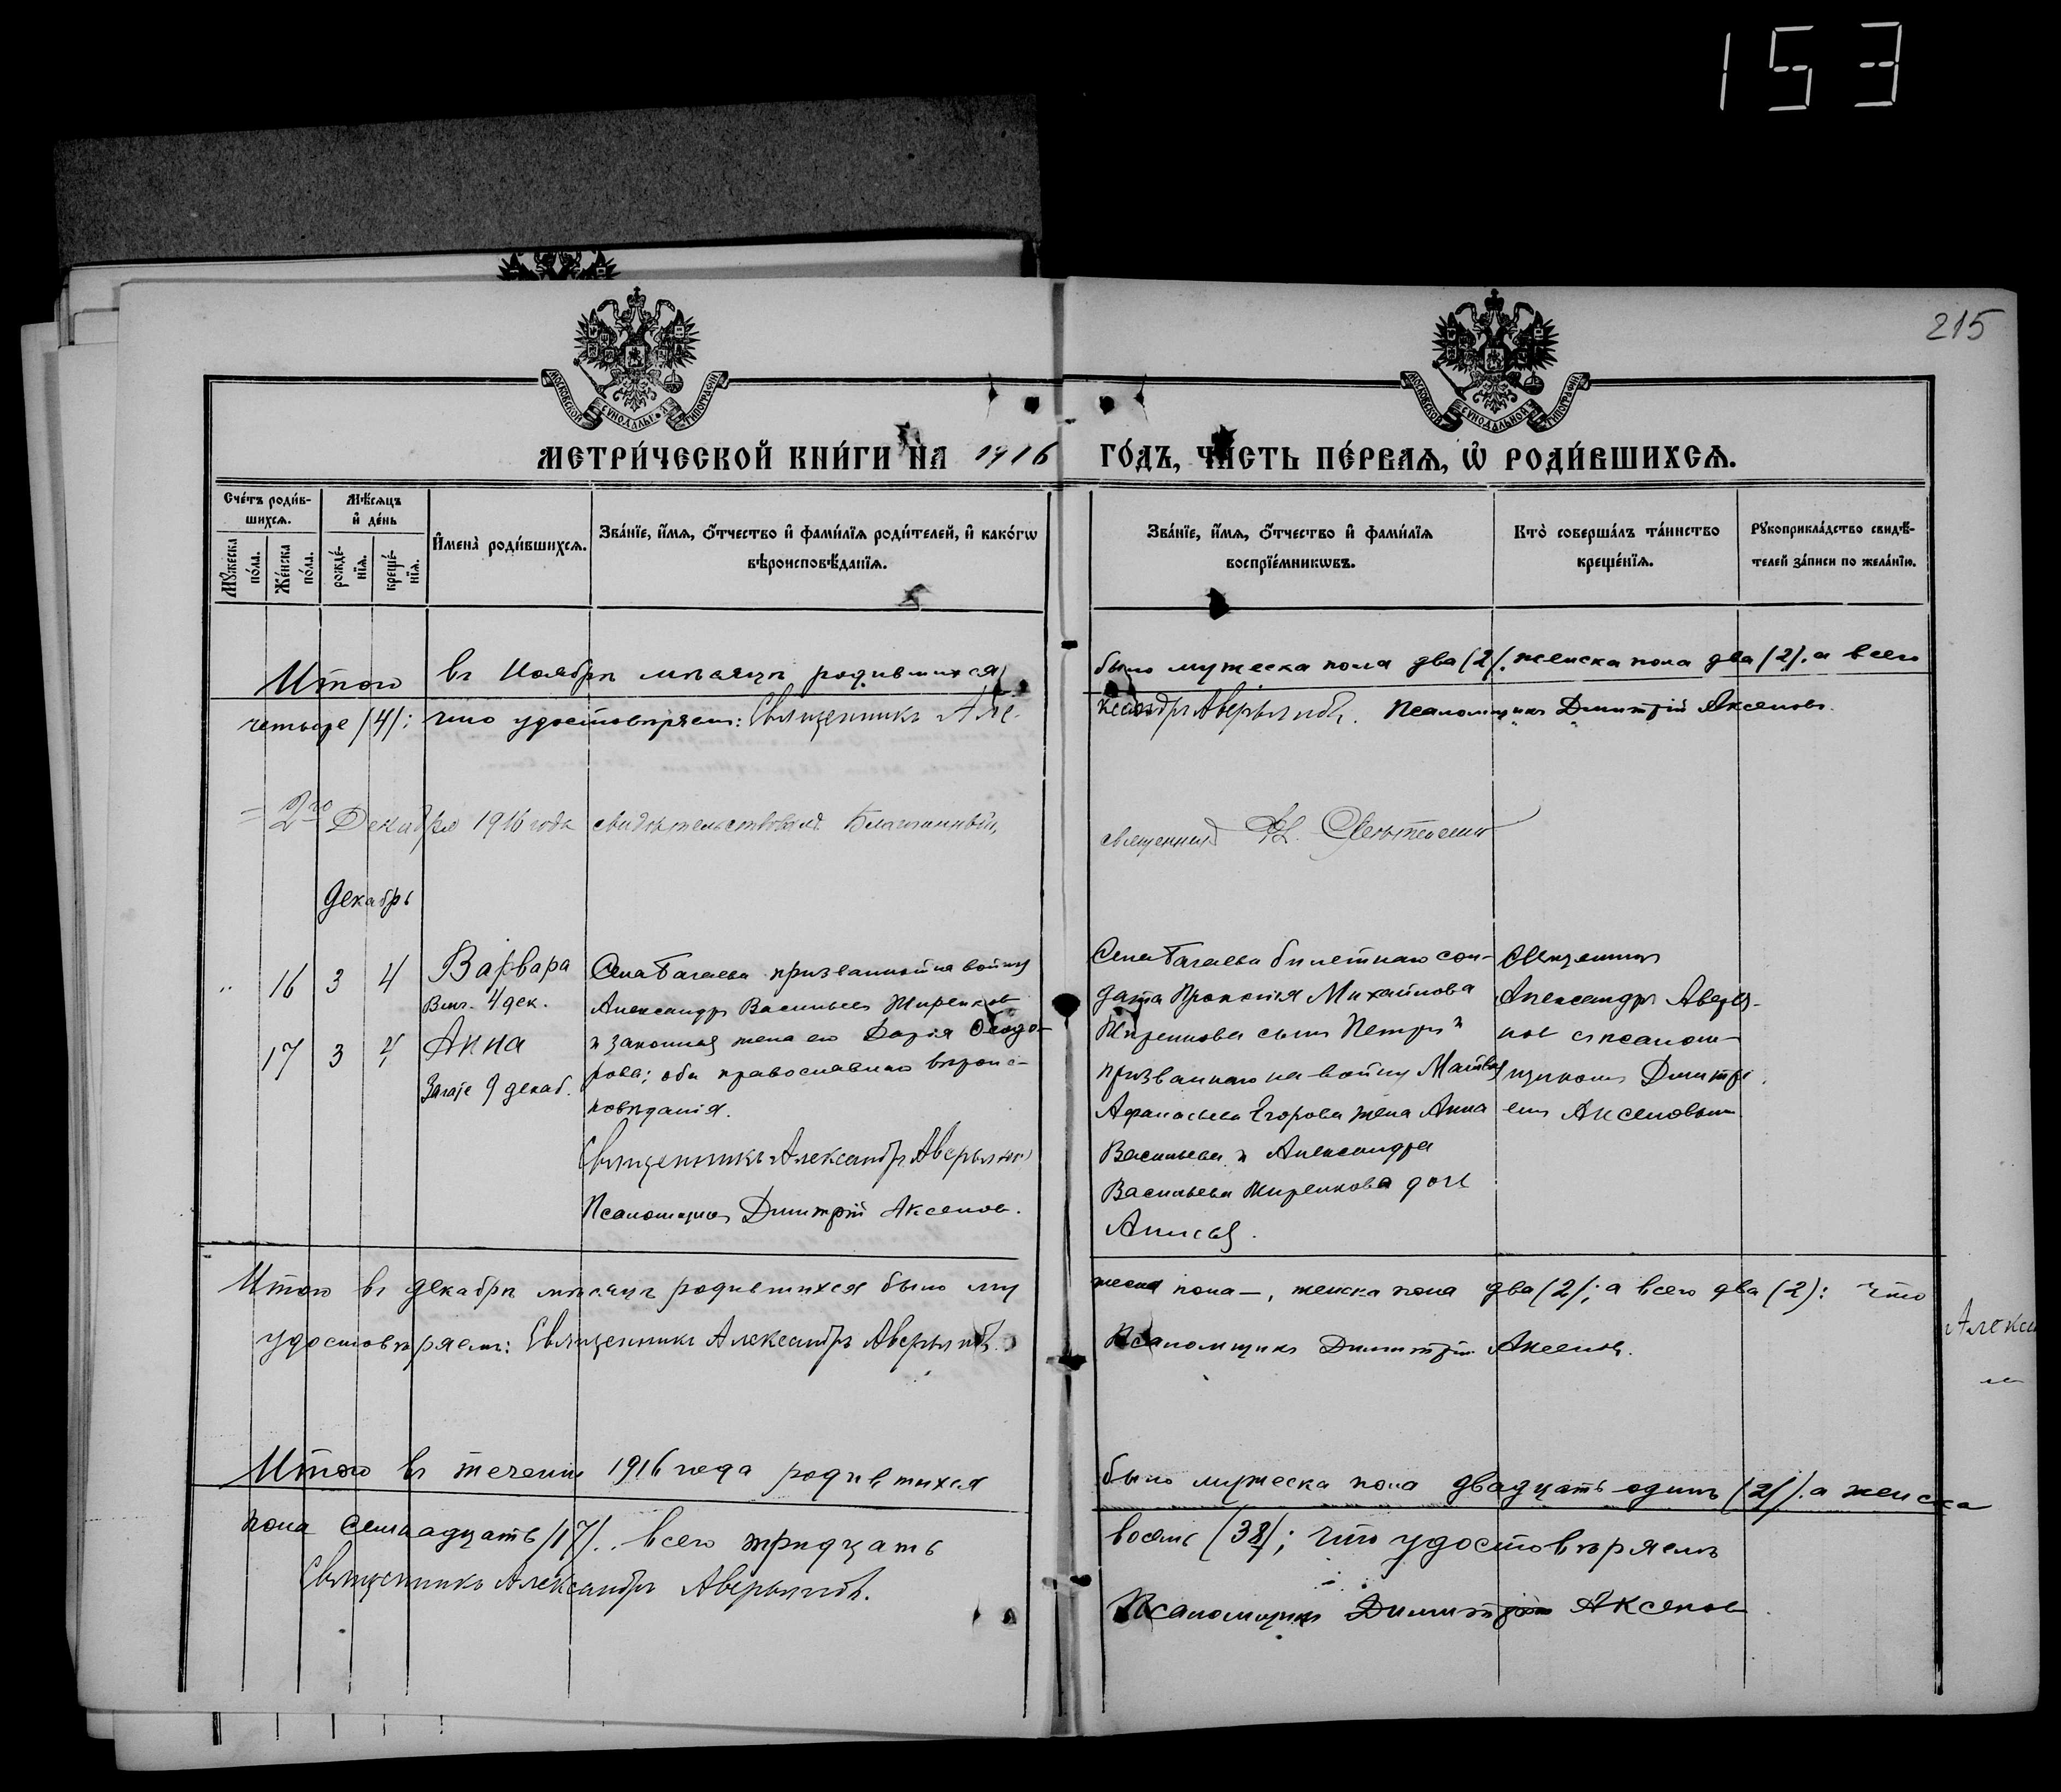 153
215
МОСКОВСКОЙ СУНОДАЛЬНОЙ ТИПОГРАФІИ
МОСКОВСКОЙ СУНОДАЛЬНОЙ ТИПОГРАФІИ
МЕТРИ́ЧЕСКОЙ КНИ́ГИ НА 1916 ГО́ДЪ, ЧА́СТЬ ПЕ́РВАѦ, Ѡ҆ РОДИ́ВШИХСѦ.
Сче́тъ роди́в-
шихсѧ.
Мѣ́сѧцъ
и҆ де́нь
Мꙋ́жеска по́ла.
Же́нска по́ла.
рожде́-нїѧ.
креще́-нїѧ.
И҆мена̀ роди́вшихсѧ.
Зва́нїе, и҆́мѧ, ѻ҆́тчество и҆ фами́лїѧ роди́телей, и҆ како́гѡ
вѣроисповѣ́данїѧ.
Зва́нїе, и҆́мѧ, ѻ҆́тчество и҆ фами́лїѧ
воспрїе́мникѡвъ.
Кто̀ соверша́лъ та́инство
креще́нїѧ.
Рꙋкоприкла́дство свидѣ́-
телей за́писи по жела́нїю.
Итого въ Ноябрѣ мѣсяцѣ родившихся было мужеска пола два (2). женска пола два (2). а всего
четыре (4): что удостовѣряемъ: Священникъ Александръ Аверьяновъ. Псаломщикъ Димитрій Аксеновъ.
= 2го Декабря 1916 года свидѣтельствовалъ Благочинный,
священникъ
Декабрь
" 16 3 4 Варвара
4 дек.
17 3 4 Анна
9 декаб.
Села Багаева призванный на войну
Александръ Васильевъ Жиренков
и законная жена его Дарія Ѳеодо-
рова; оба православнаго вѣроис-
повѣданія.
Священникъ Александръ Аверьяновъ
Псаломщикъ Димитрій Аксенов.
Села Багаева билетнаго сол-
дата Прокопія Михайлова
Жиренкова сынъ Петръ и
призваннаго на войну Матвѣя
Афанасьева Егорова жена Анна
Васильева и Александра
Васильева Жиренкова дочь
Анисья.
Священник
Александръ Аверья-
нов съ псалом-
щикомъ Димитрі
емъ Аксеновым
Итого въ декабрѣ мѣсяцѣ родившихся было му
жеска пола —, женска пола два (2); а всего два (2): что
удостовѣряемъ: Священникъ Александръ Аверьяновъ.
Псаломщикъ Димитрій Аксенов.
Алекса
Итого въ течении 1916 года родившихся было мужеска пола двадцать одинъ (21). а женска
пола семнадцать (17). всего тридцать восемь (38); что удостовѣряемъ
Священникъ Александръ Аверьяновъ.
Псаломщикъ Димитрій Аксенов